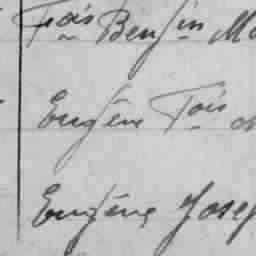 Fois Benjin
Eugène Fois
Eugène Josep